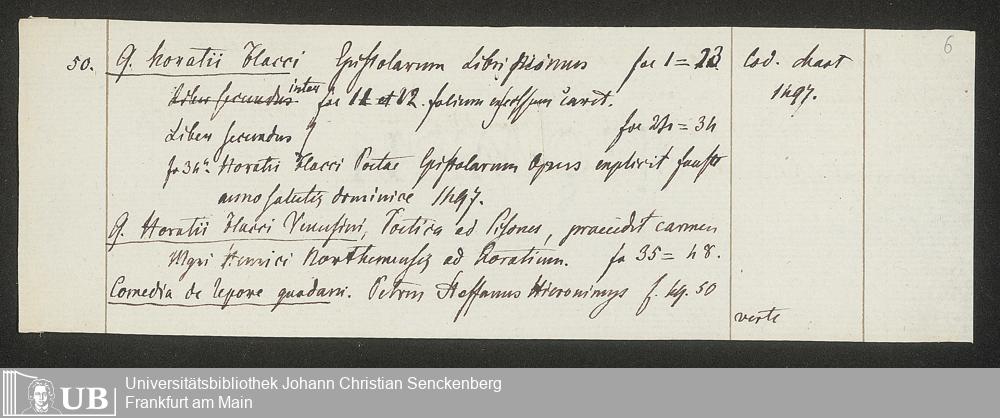 6
50. Q. Horatii Flacci Epistolarum Liber primus for 1 = 23. Cod. chart
Liber secundus inter for 11 et 12. folium excissum caret. 1497.
Liber secundus for 24 = 34
fo 34a Horatii Flacci Poetae Epistolarum Opus explicit
anno salutis dominice 1497.
Q. Horatii Flacci Venusini, Poetica ad Pisones, praecedit carmen
Mgri Henrici Northemensis ad Horatium. fo 35 = 48.
Comedia de lepore quadam. Petrus Steffanus Hieronimus f. 49. 50
verte
UB Universitätsbibliothek Johann Christian Senckenberg
Frankfurt am Main